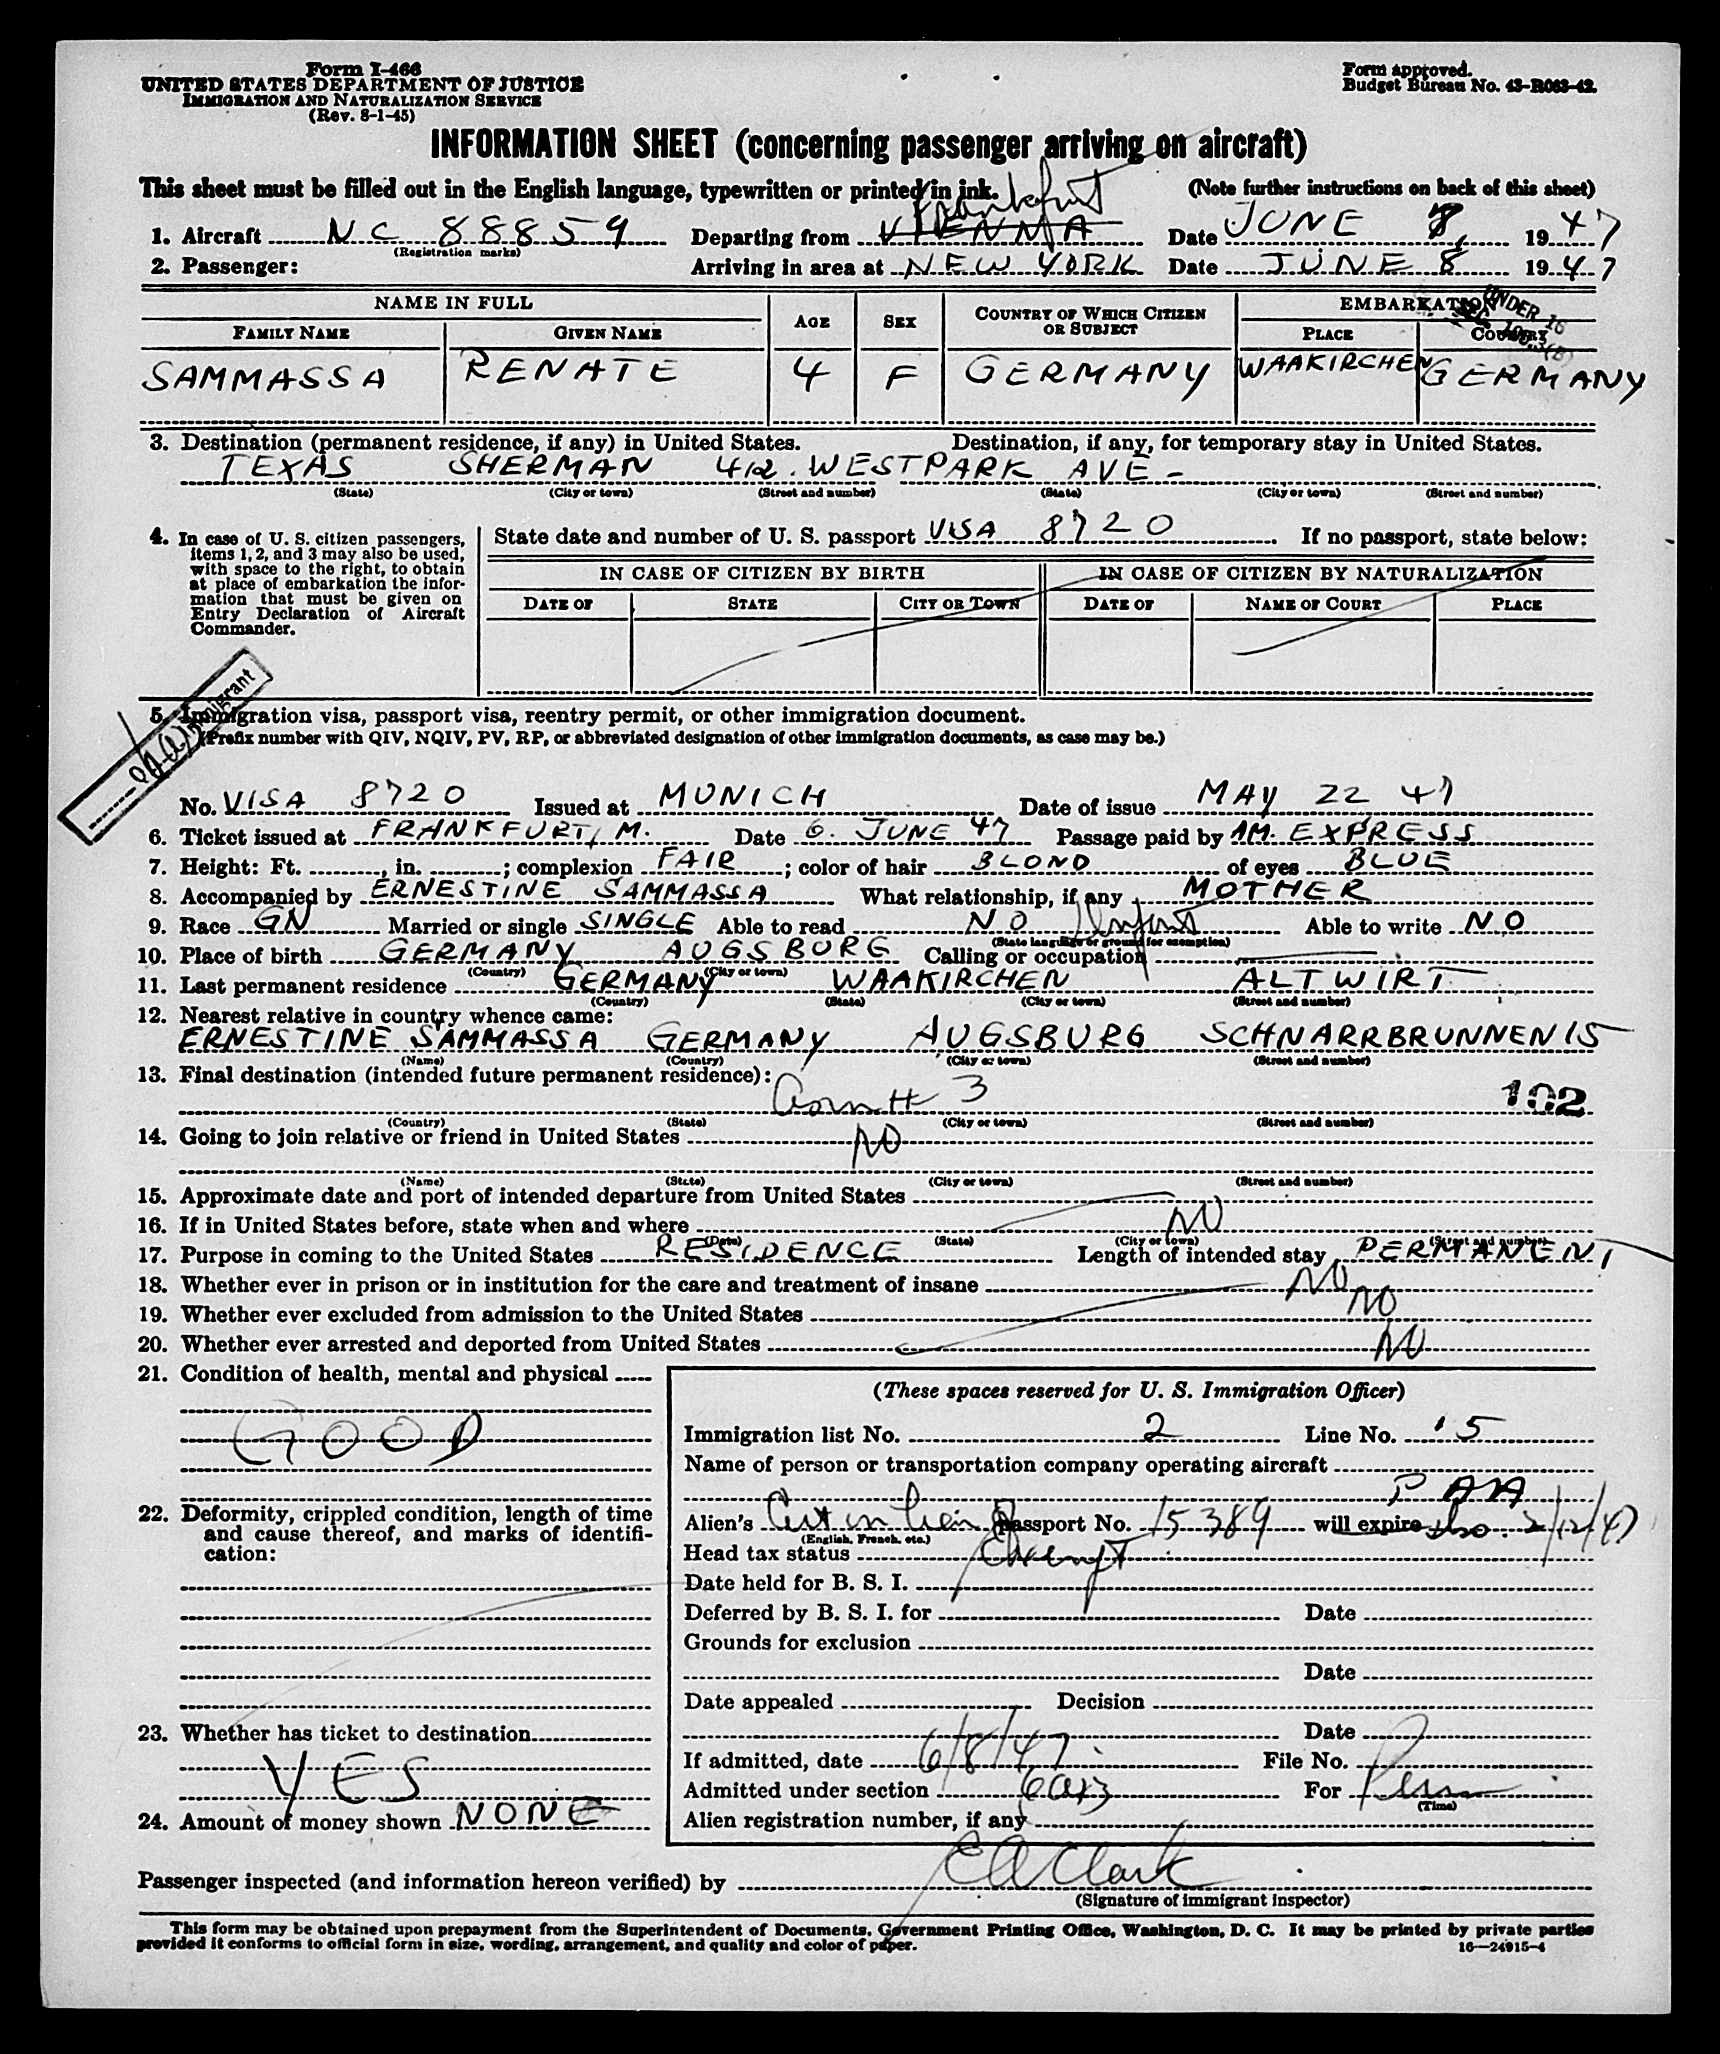 Form I-466
UNITED STATES DEPARTMENT OF JUSTICE
IMMIGRATION AND NATURALIZATION SERVICE
(Rev. 8-1-45)
Form approved.
Budget Bureau No. 43-R063-42.
INFORMATION SHEET (concerning passenger arriving on aircraft)
This sheet must be filled out in the English language, typewritten or printed in ink. (Note further instructions on back of this sheet)
Frankfurt
1. Aircraft NC 88859 Departing from VIENNA Date JUNE 7, 1947
(Registration marks)
2. Passenger: Arriving in area at NEW YORK Date JUNE 8 1947
NAME IN FULL AGE SEX COUNTRY OF WHICH CITIZEN OR SUBJECT EMBARKATION
UNDER 16
FAMILY NAME GIVEN NAME PLACE COUNTRY
SAMMASSA RENATE 4 F GERMANY WAAKIRCHEN GERMANY
3. Destination (permanent residence, if any) in United States. Destination, if any, for temporary stay in United States.
TEXAS SHERMAN 412. WESTPARK AVE-
(State) (City or town) (Street and number) (State) (City or town) (Street and number)
4. In case of U. S. citizen passengers, items 1, 2, and 3 may also be used, with space to the right, to obtain at place of embarkation the information that must be given on Entry Declaration of Aircraft Commander.
State date and number of U. S. passport VISA 8720 If no passport, state below:
IN CASE OF CITIZEN BY BIRTH IN CASE OF CITIZEN BY NATURALIZATION
DATE OF STATE CITY OR TOWN DATE OF NAME OF COURT PLACE
Immigrant
5. Immigration visa, passport visa, reentry permit, or other immigration document.
(Prefix number with QIV, NQIV, PV, RP, or abbreviated designation of other immigration documents, as case may be.)
No. VISA 8720 Issued at MUNICH Date of issue MAY 22 47
6. Ticket issued at FRANKFURT, M. Date 6. JUNE 47 Passage paid by AM. EXPRESS
7. Height: Ft. , in. ; complexion FAIR ; color of hair BLOND of eyes BLUE
8. Accompanied by ERNESTINE SAMMASSA What relationship, if any MOTHER
9. Race GN Married or single SINGLE Able to read NO Infant Able to write NO
(State language or ground for exemption)
10. Place of birth GERMANY AUGSBURG Calling or occupation
(Country) (City or town)
11. Last permanent residence GERMANY WAAKIRCHEN ALTWIRT
(Country) (State) (City or town) (Street and number)
12. Nearest relative in country whence came:
ERNESTINE SAMMASSA GERMANY AUGSBURG SCHNARRBRUNNEN 15
(Name) (Country) (City or town) (Street and number)
13. Final destination (intended future permanent residence):
3 102
(Country) (State) (City or town) (Street and number)
14. Going to join relative or friend in United States NO
(Name) (State) (City or town) (Street and number)
15. Approximate date and port of intended departure from United States
16. If in United States before, state when and where NO
(Date) (State) (City or town) (Street and number)
17. Purpose in coming to the United States RESIDENCE Length of intended stay PERMANENT
18. Whether ever in prison or in institution for the care and treatment of insane NO
19. Whether ever excluded from admission to the United States NO
20. Whether ever arrested and deported from United States NO
21. Condition of health, mental and physical
GOOD
22. Deformity, crippled condition, length of time and cause thereof, and marks of identification:
23. Whether has ticket to destination
YES
24. Amount of money shown NONE
(These spaces reserved for U. S. Immigration Officer)
Immigration list No. 2 Line No. 5
Name of person or transportation company operating aircraft
PAA
Alien's Cert in lieu of passport No. 15389 will expire 2/12/47
(English, French, etc.)
Head tax status Exempt
Date held for B. S. I.
Deferred by B. S. I. for Date
Grounds for exclusion
Date
Date appealed Decision
Date
If admitted, date 6/8/47 File No.
Admitted under section 6a3 For Perm
(Time)
Alien registration number, if any
Passenger inspected (and information hereon verified) by E A Clark
(Signature of immigrant inspector)
This form may be obtained upon prepayment from the Superintendent of Documents, Government Printing Office, Washington, D. C. It may be printed by private parties
provided it conforms to official form in size, wording, arrangement, and quality and color of paper. 16—24915-4